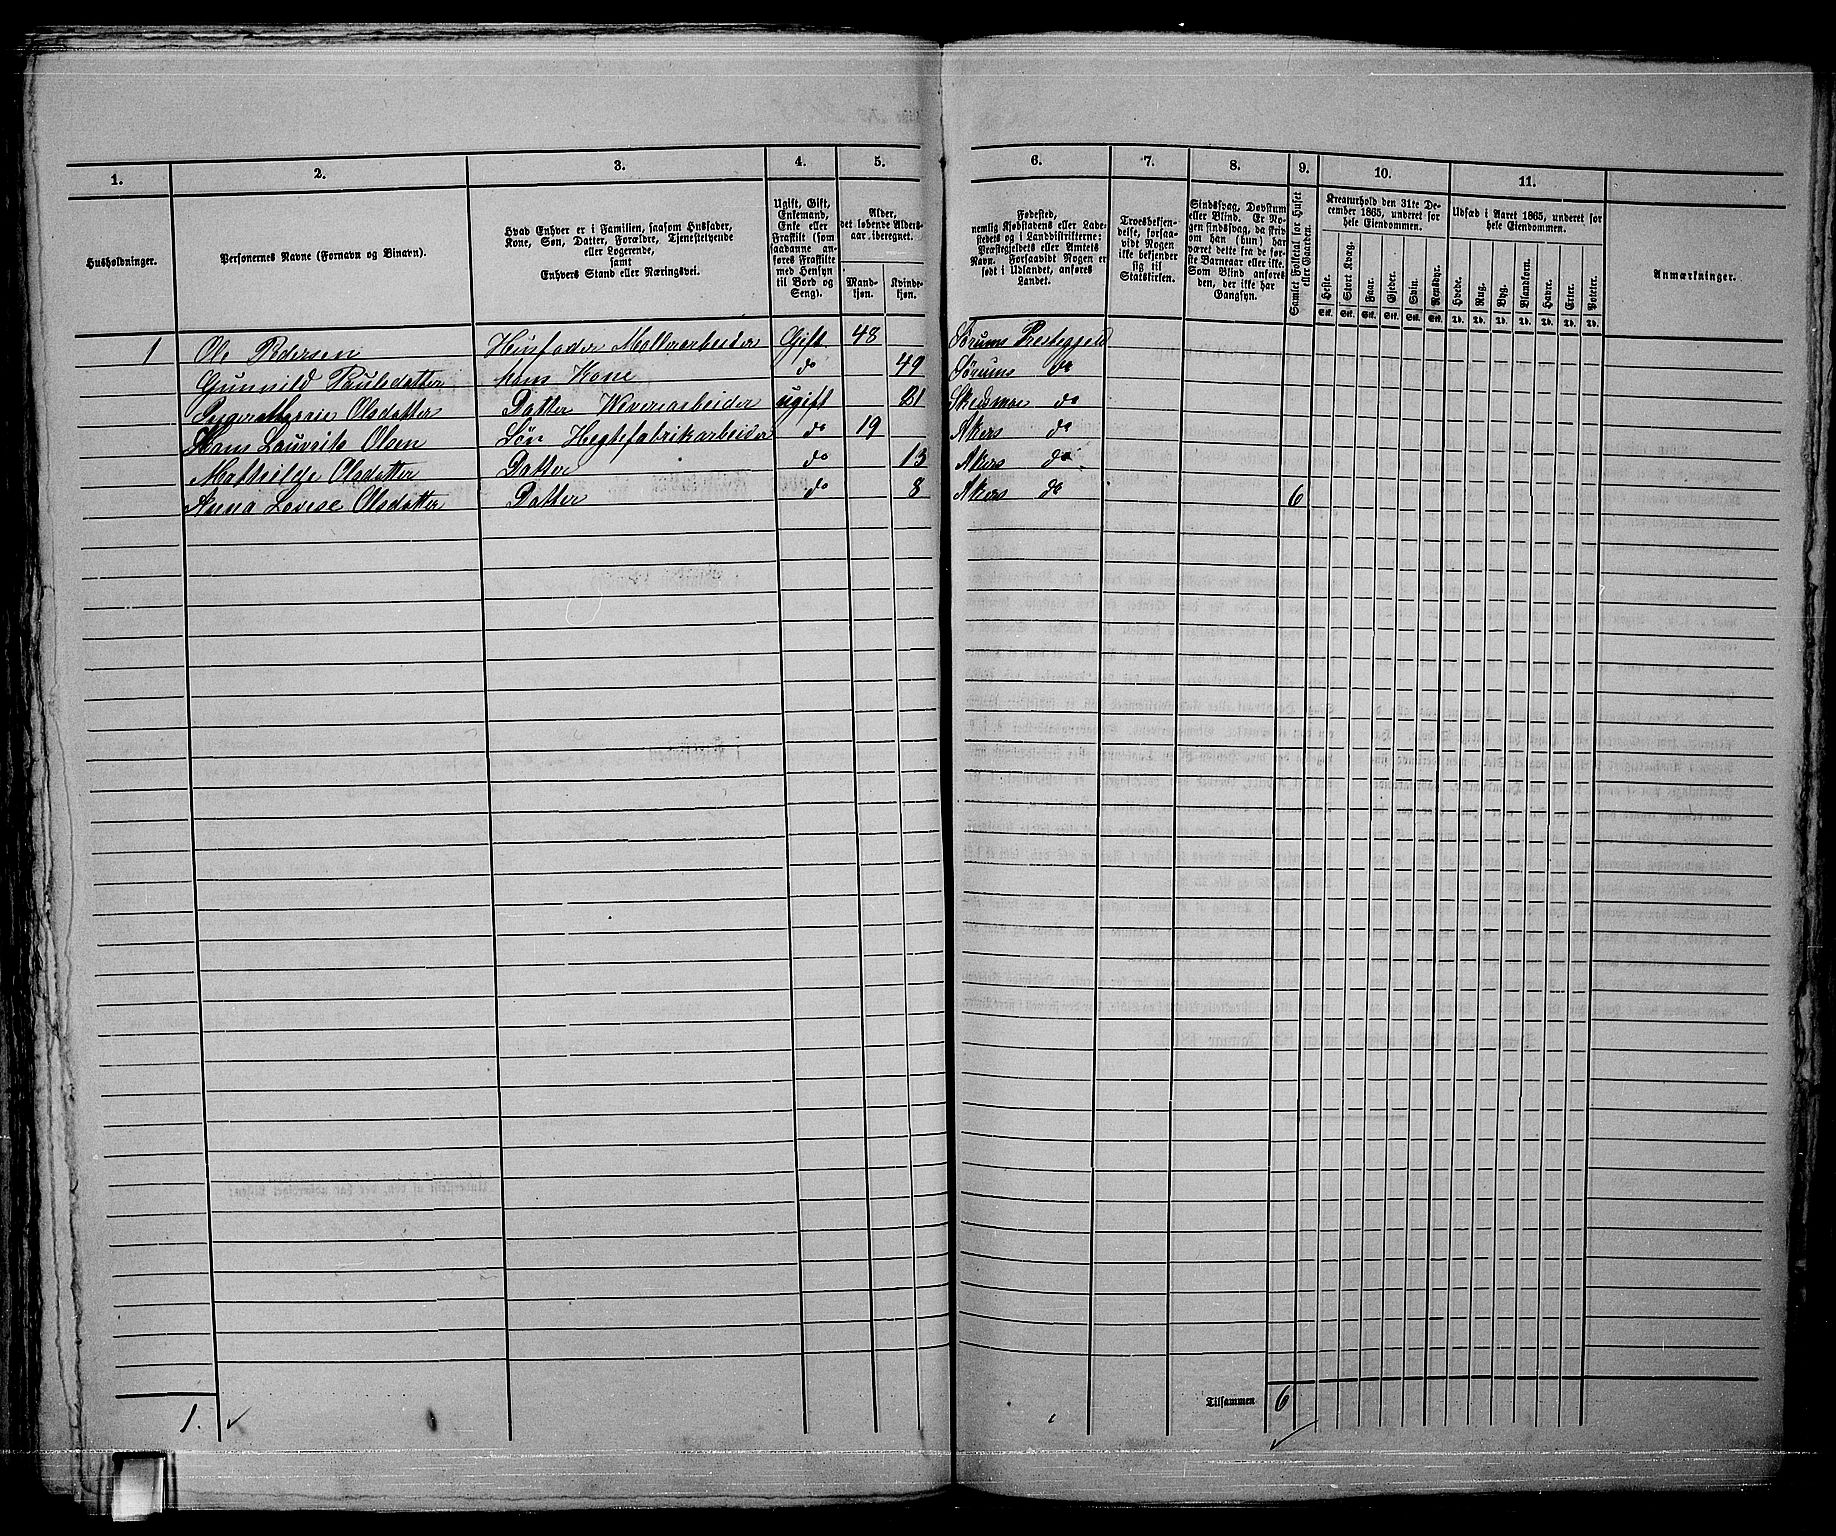 1.
2.
3.
4.
5.
6.
7.
8.
9.
10.
11.
Husholdninger.
Personernes Navne (Fornavn og Binavn).
Hvad Enhver er i Familien, saasom Husfader,
Kone, Søn, Datter, Forældre, Tjenestetyende
eller Logerende,
samt
Enhvers Stand eller Næringsvei.
Ugift, Gift,
Enkemand,
Enke eller
Fraskilt (som
saadanne an-
føres Fraskilte
med Hensyn
til Bord og
Seng).
Alder,
det løbende Alders-
aar iberegnet.
Mand-
kjøn.
Kvinde-
kjøn.
Fødested,
nemlig Kjøbstadens eller Lade-
stedets og i Landdistrikterne:
Præstegjeldets eller Amtets
Navn. Forsaavidt Nogen er
født i Udlandet, anføres
Landet.
Troesbekjen-
delse, forsaa-
vidt Nogen
ikke bekjender
sig til
Statskirken.
Sindssvag, Døvstum
eller Blind. Er No-
gen sindssvag, da skriv
om han (hun) har
været dette fra de før-
ste Barneaar eller ikke.
Som Blind anføres
den, der ikke har
Gangsyn.
Samlet Folketal for Huset
eller Gaarden.
Kreaturhold den 31te De-
cember 1865, underet for
hele Eiendommen.
Heste.
Stort Kvæg.
Faar.
Gjeder.
Sviin.
Rensdyr.
Stk. Stk. Stk. Stk. Stk. Stk.
Udsæd i Aaret 1865, underet for
hele Eiendommen.
Hvede.
Rug.
Byg.
Blandkorn.
Havre.
Erter.
Poteter.
Td. Td. Td. Td. Td. Td. Td.
Anmærkninger.
1 Ole Pedersen Husfader Møllerarbeider Gift 48 Sørums Prestegjeld
Gunnild Paulsdatter hans Kone do 49 Sørums do
Olsdatter Datter Veverarbeider ugift 21 Skedsmoe do
Hans Lauritz Olsen Søn Hegtefabrikarbeider do 19 Akers do
Mathilde Olsdatter Datter do 13 Akers do
Anna Lovise Olsdatter Datter do 8 Akers do 6
1.
Tilsammen 6